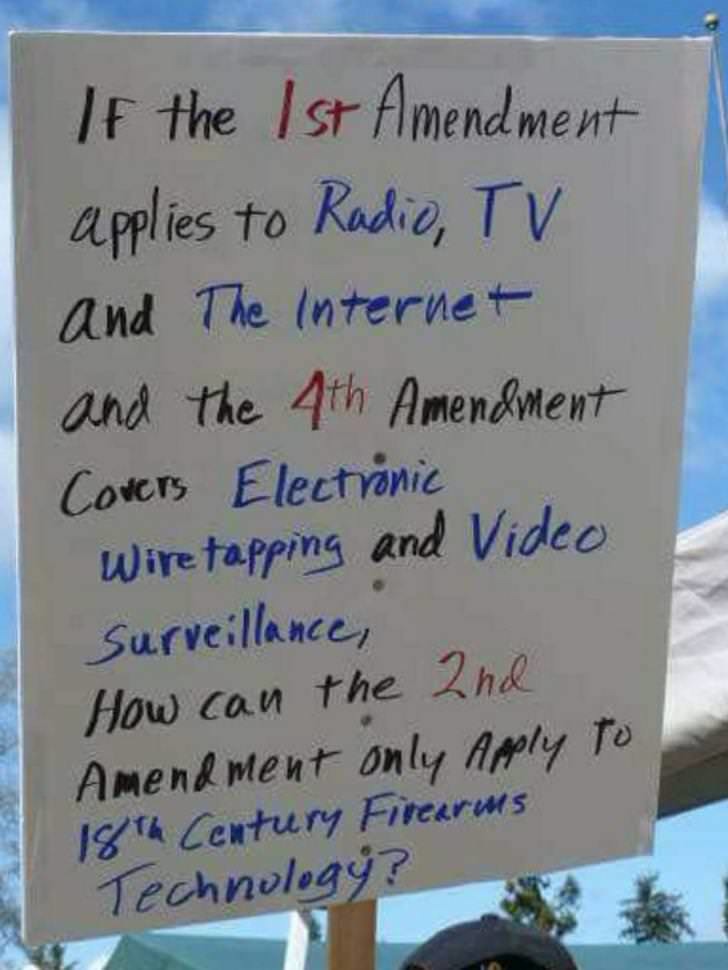 IF the 1st Amendment
applies to Radio, TV
and The Internet
and the 4th Amendment
Covers Electronic
Wiretapping and Video
Surveillance,
How can the 2nd
Amendment only Apply To
18th Century Firearms
Technology?